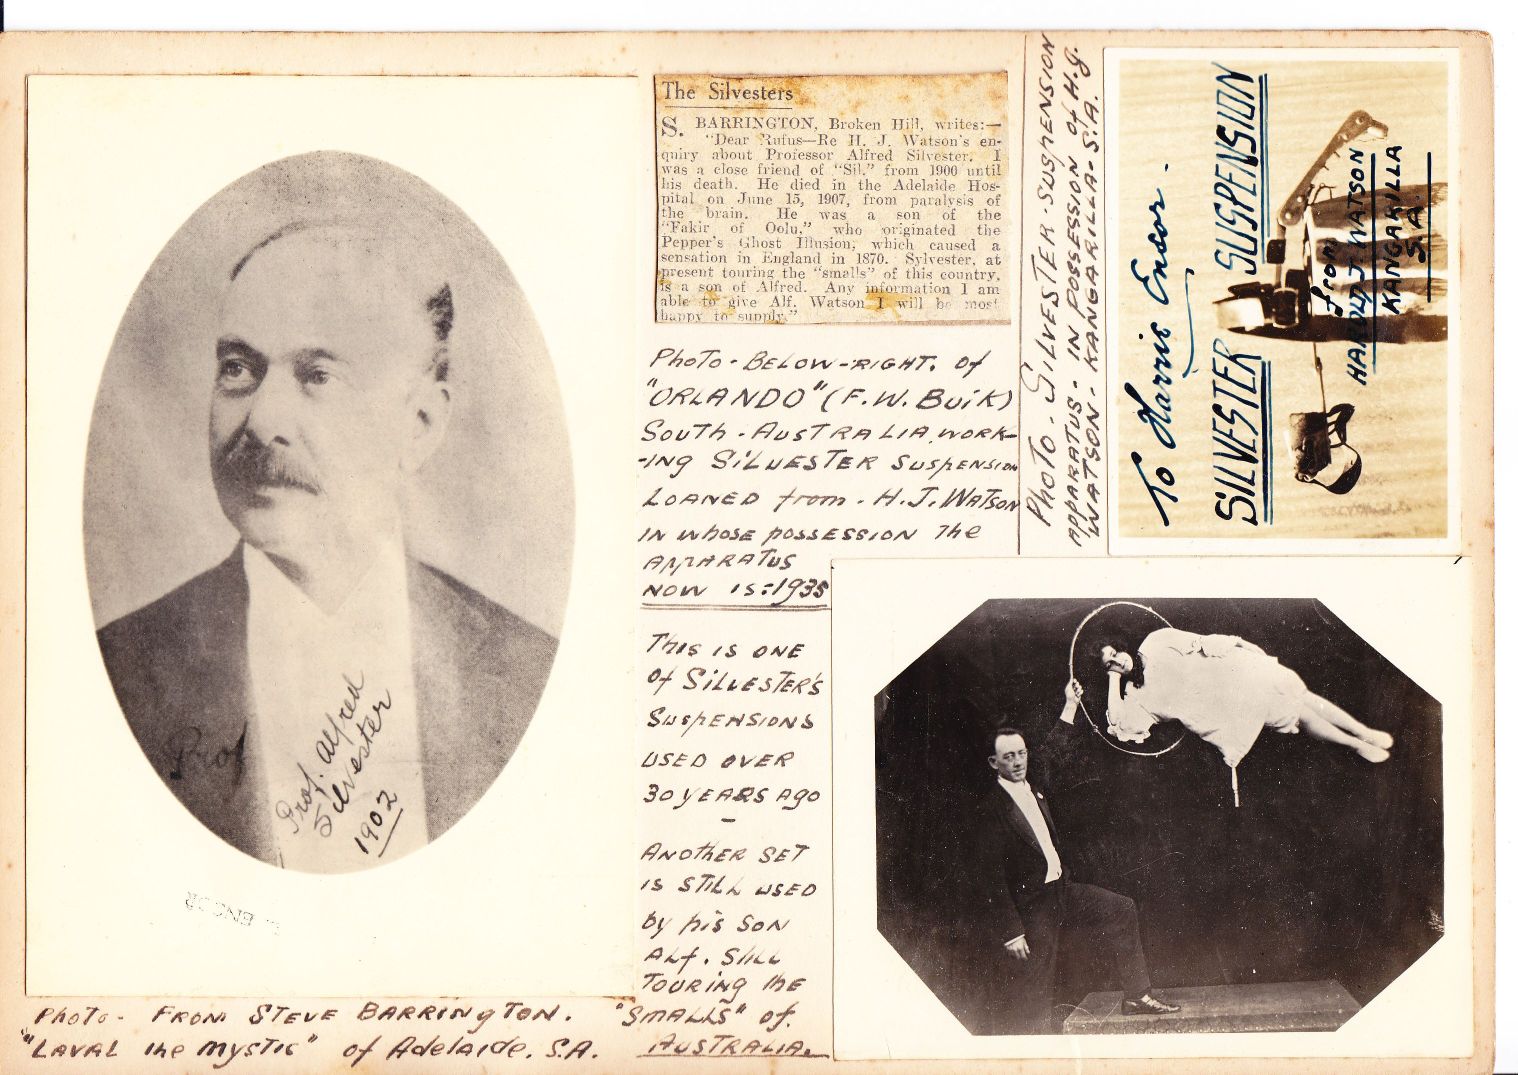 The Silvesters
S. BARRINGTON, Broken Hill, writes:—
"Dear Rufus—Re H. J. Watson's en-
quiry about Professor Alfred Silvester. I
was a close friend of "Sil." from 1900 until
his death. He died in the Adelaide Hos-
pital on June 15, 1907, from paralysis of
the brain. He was a son of the
"Fakir of Oolu," who originated the
Pepper's Ghost Illusion, which caused a
sensation in England in 1870. Sylvester, at
present touring the "smalls" of this country,
is a son of Alfred. Any information I am
able to give Alf. Watson I will be most
happy to supply."
PHOTO - BELOW-RIGHT. OF
"ORLANDO" (F. W. BUIK)
SOUTH-AUSTRALIA, WORK-
-ING SILVESTER SUSPENSION
LOANED from - H.J. WATSON
IN WHOSE POSSESSION THE
APPARATUS
NOW IS:-1935
THIS IS ONE
OF SILVESTER'S
SUSPENSIONS
USED OVER
30 YEARS AGO
-
ANOTHER SET
IS STILL USED
BY HIS SON
ALF. STILL
TOURING THE
"SMALLS" OF.
AUSTRALIA.
PHOTO - SILVESTER-SUSPENSION
APPARATUS - IN POSSESSION OF H.J.
WATSON - KANGARILLA - S.A.
To Harrie Ensor.
SILVESTER SUSPENSION
from
HAROLD J. WATSON
KANGARILLA
S.A.
Prof
Prof. Alfred
Silvester
1902
ENSOR
PHOTO - FROM STEVE BARRINGTON.
"LAVAL THE MYSTIC" of Adelaide. S.A.